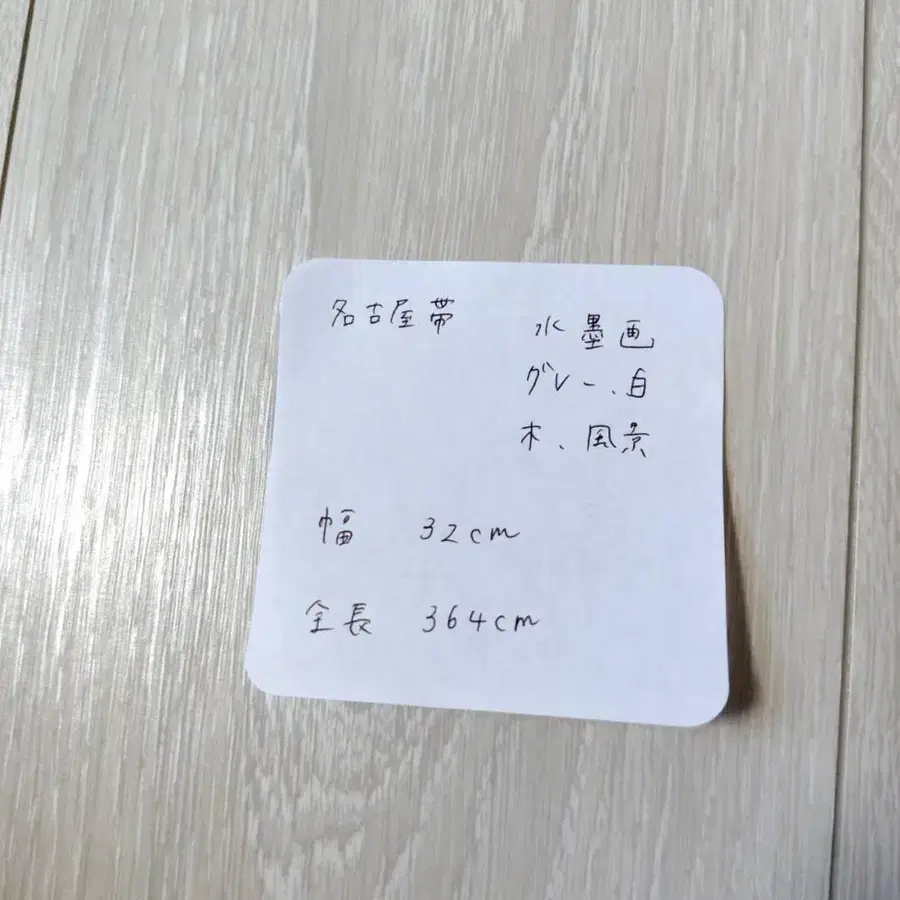 名古屋帯
水墨画
グレー、白
木、風景
幅 32cm
全長 364cm